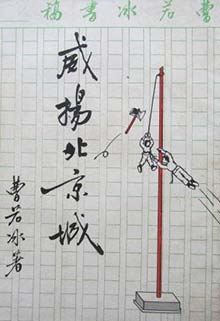 曹若冰書稿
威揚北京城
曹若冰著